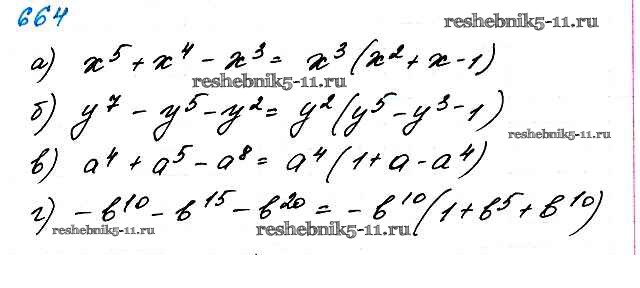 664
reshebnik5-11.ru
а) x⁵ + x⁴ - x³ = x³ (x² + x - 1)
reshebnik5-11.ru
б) y⁷ - y⁵ - y² = y² (y⁵ - y³ - 1)
reshebnik5-11.ru
в) a⁴ + a⁵ - a⁸ = a⁴ (1 + a - a⁴)
г) - b¹⁰ - b¹⁵ - b²⁰ = - b¹⁰ (1 + b⁵ + b¹⁰)
reshebnik5-11.ru
reshebnik5-11.ru